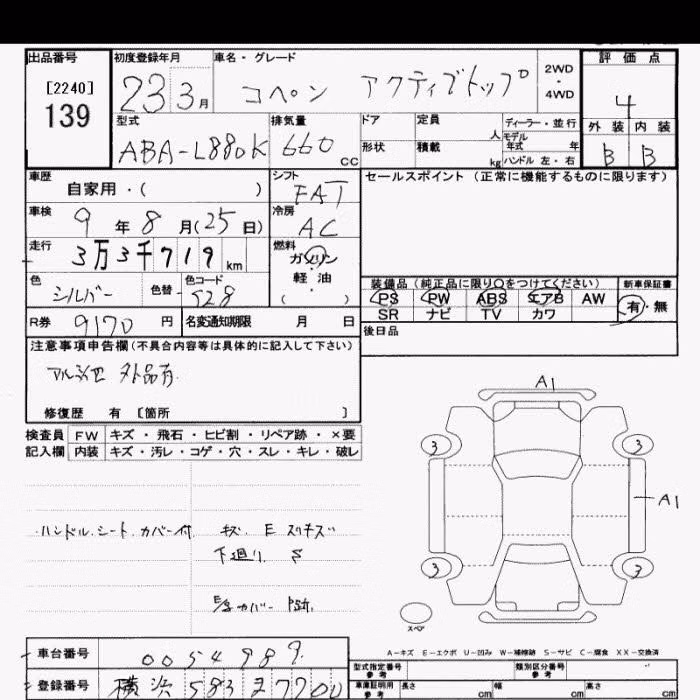 出品番号 初度登録年月 車名・グレード 評価点
[2240] 139 23 3月 コペン アクティブトップ 2WD・4WD 4
型式 排気量 ドア 定員 人 ディーラー・並行 外装 内装
ABA-L880K 660 cc 形状 積載 kg モデル年式 年 ハンドル 左・右 B B
車歴 自家用・( ) シフト FAT セールスポイント (正常に機能するものに限ります)
車検 9年8月(25日) 冷房 AC
走行 3万3千719km 燃料 ガソリン・軽油・( )
色 シルバー 色替 色コード S28
装備品 (純正品に限り○をつけてください) 新車保証書
PS PW ABS エアB AW 有・無
SR ナビ TV カワ
R券 9170円 名変通知期限 月 日 後日品
注意事項申告欄(不具合内容等は具体的に記入して下さい)
外品有
修復歴 有 [箇所 ]
検査員 FW キズ・飛石・ヒビ割・リペア跡・×要
記入欄 内装 キズ・汚レ・コゲ・穴・スレ・キレ・破レ
ハンドル.シート.カバー付 キズ E
下廻り S
カバー
A1
3 3
A1
3 3
スペア
A-キズ E-エクボ U-凹み W-補修跡 S-サビ C-腐食 XX-交換済
車台番号 0054989
登録番号 横浜 583
型式指定番号 参考 類別区分番号 参考
車庫証明用 参考 長さ cm 幅 cm 高さ cm